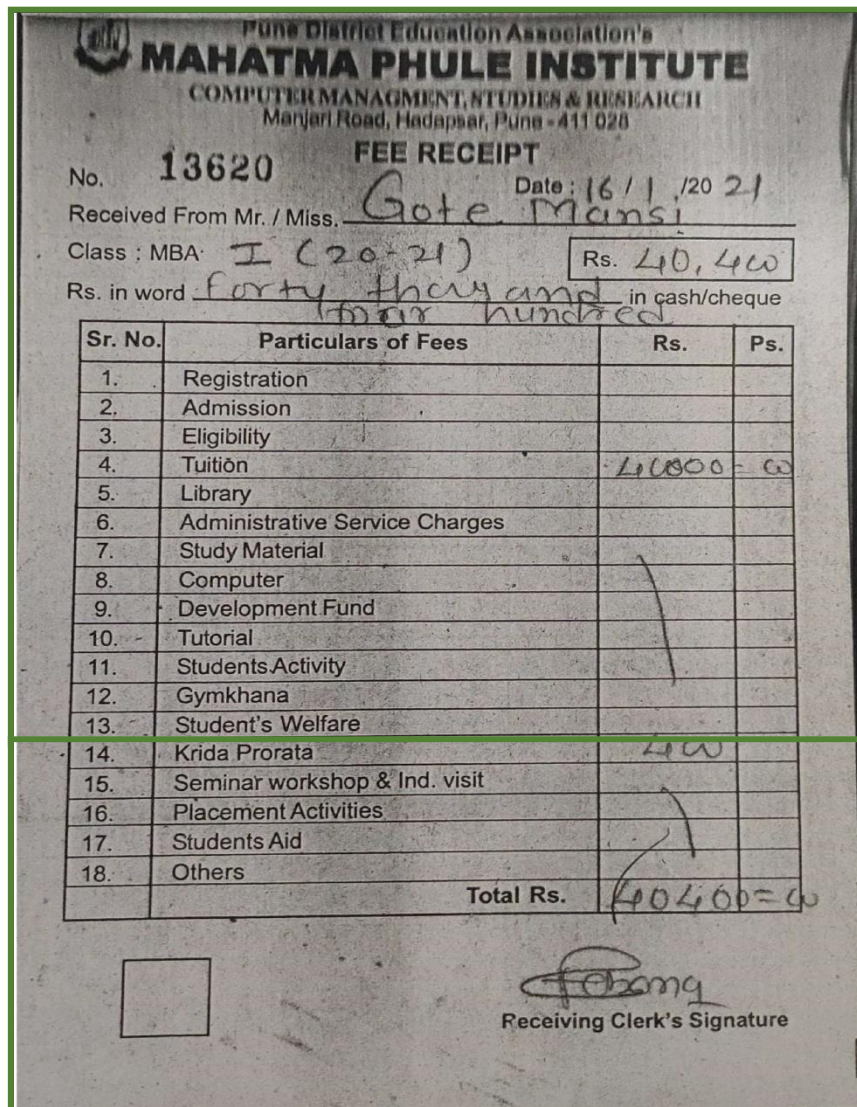 Pune District Education Association's
MAHATMA PHULE INSTITUTE
COMPUTER MANAGMENT, STUDIES & RESEARCH
Manjari Road, Hadapsar, Pune - 411 028
FEE RECEIPT
No. 13620 Date : 16 / 1 /20 21
Received From Mr. / Miss. Gote Mansi
Class : MBA I (20-21) Rs. 40,400
Rs. in word forty thousand in cash/cheque
four hundred
Sr. No. Particulars of Fees Rs. Ps.
1. Registration
2. Admission
3. Eligibility
4. Tuition 40000 - 00
5. Library
6. Administrative Service Charges
7. Study Material
8. Computer
9. Development Fund
10. Tutorial
11. Students Activity
12. Gymkhana
13. Student's Welfare
14. Krida Prorata 400
15. Seminar workshop & Ind. visit
16. Placement Activities
17. Students Aid
18. Others
Total Rs. 40400=00
Receiving Clerk's Signature